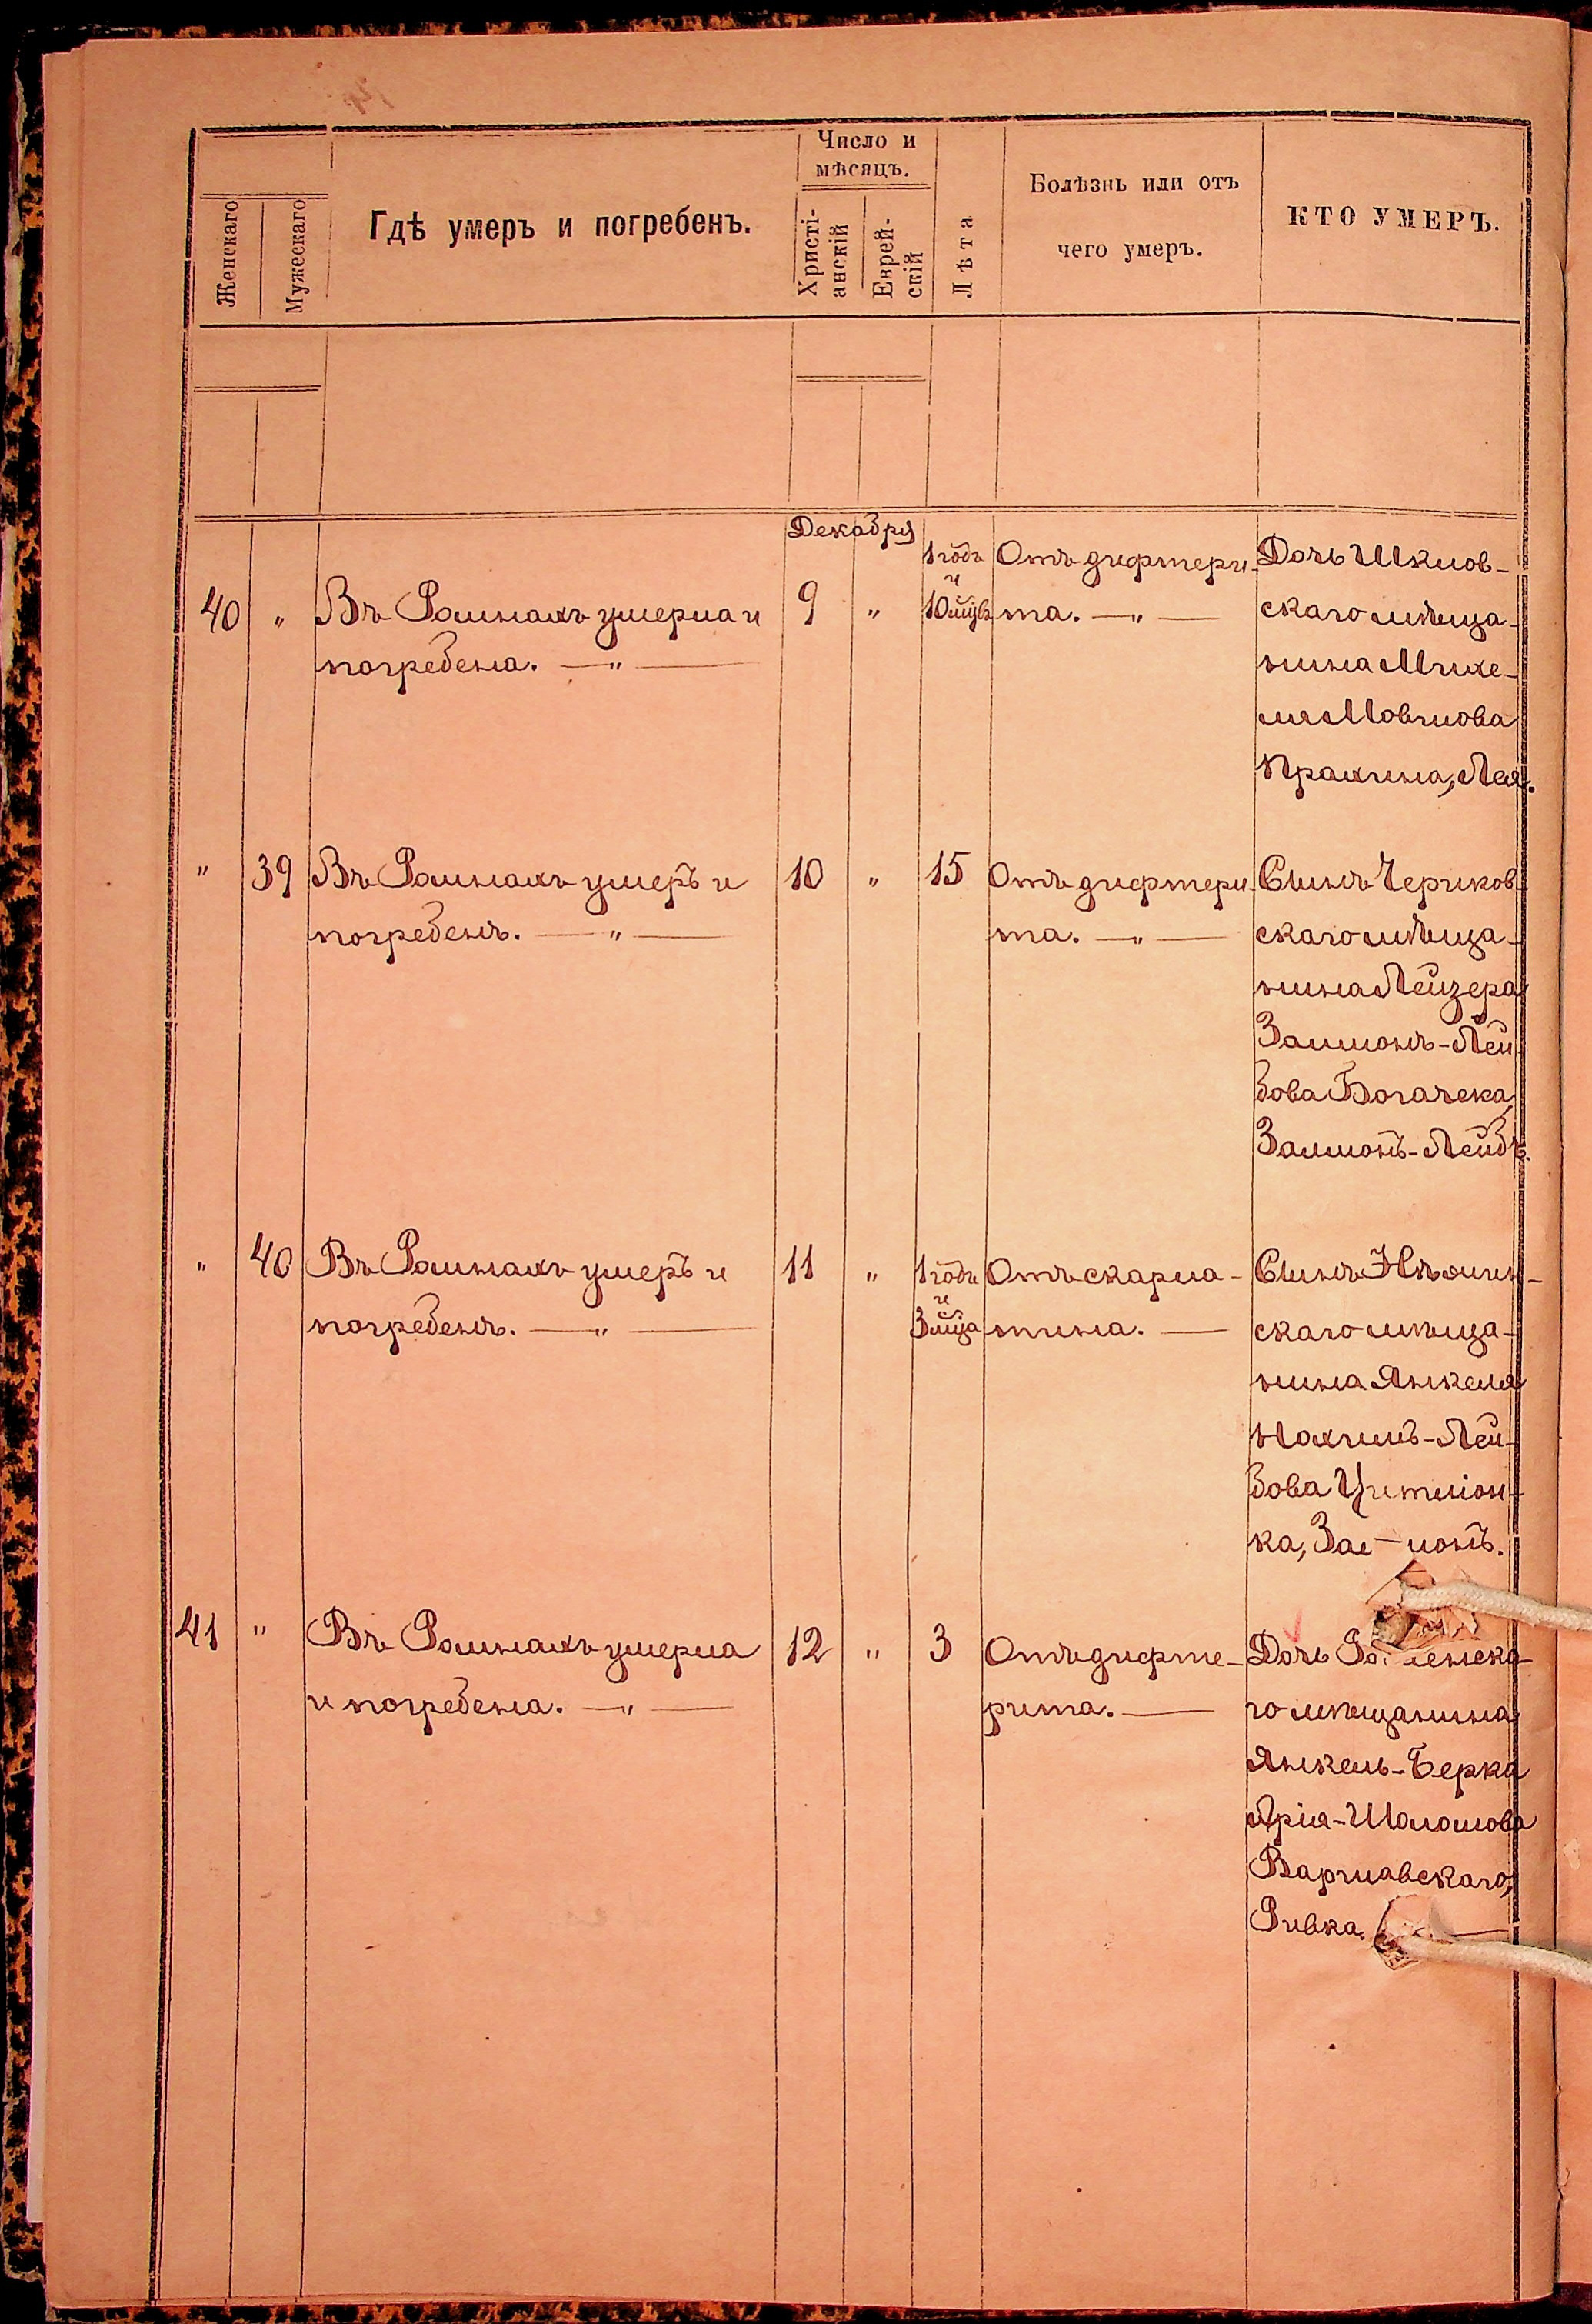 Женскаго
Мужескаго
Гдѣ умеръ и погребенъ.
Число и
мѣсяцъ.
Христі-
анскій
Еврей-
скій
Лѣта
Болѣзнь или отъ
чего умеръ.
КТО УМЕРЪ.
Декабря
40 " Въ Ромнахъ умерла и
погребена. — " —
9 " 1 годъ
и
10 мцвъ
Отъ дифтери-
та. — " —
Дочь Шклов-
скаго мѣща-
нина Михе-
ля Мовшова
Прахина, Лея.
" 39 Въ Ромнахъ умеръ и
погребенъ. — " —
10 " 15 Отъ дифтери-
та. — " —
Сынъ Чериков-
скаго мѣща-
нина Лейзера
Залмонъ-Лей-
бова Богачека,
Залмонъ-Лейбъ.
" 40 Въ Ромнахъ умеръ и
погребенъ. — " —
11 " 1 годъ
и
3 мца
Отъ скарла-
тина. —
Сынъ Нѣжин-
скаго мѣща-
нина Янкеля
Нохимъ-Лей-
бова Цитліон-
ка, Зал—монъ.
41 " Въ Ромнахъ умерла
и погребена. — " —
12 " 3 Отъ дифте-
рита. —
Дочь
го мѣщанина
Янкель-Берка
Арія-Шоломова
Варшавскаго,
Ривка. —